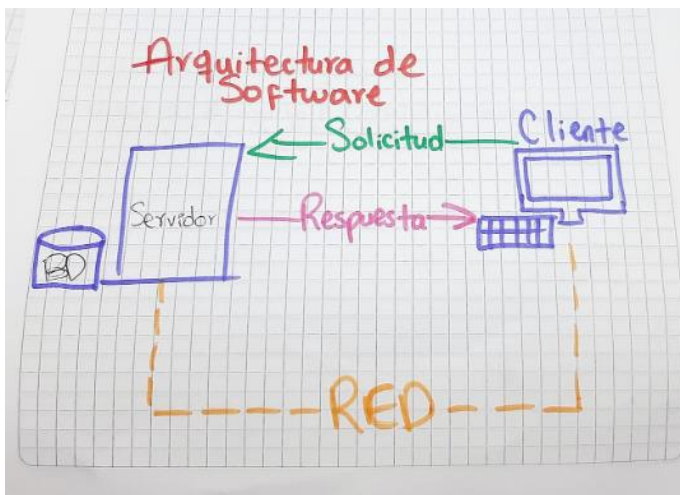 Arquitectura de
Software
Solicitud
Cliente
Servidor
Respuesta
BD
RED